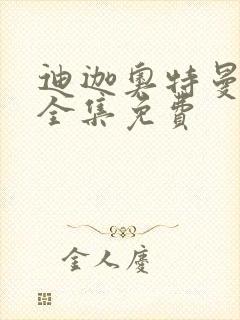 迪迦奥特曼
全集免费
金人庆